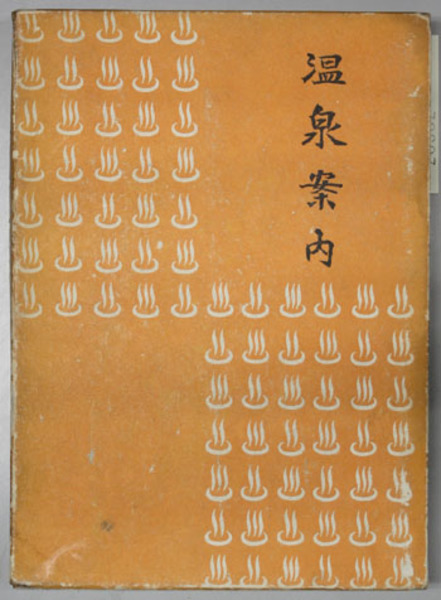 温泉案内